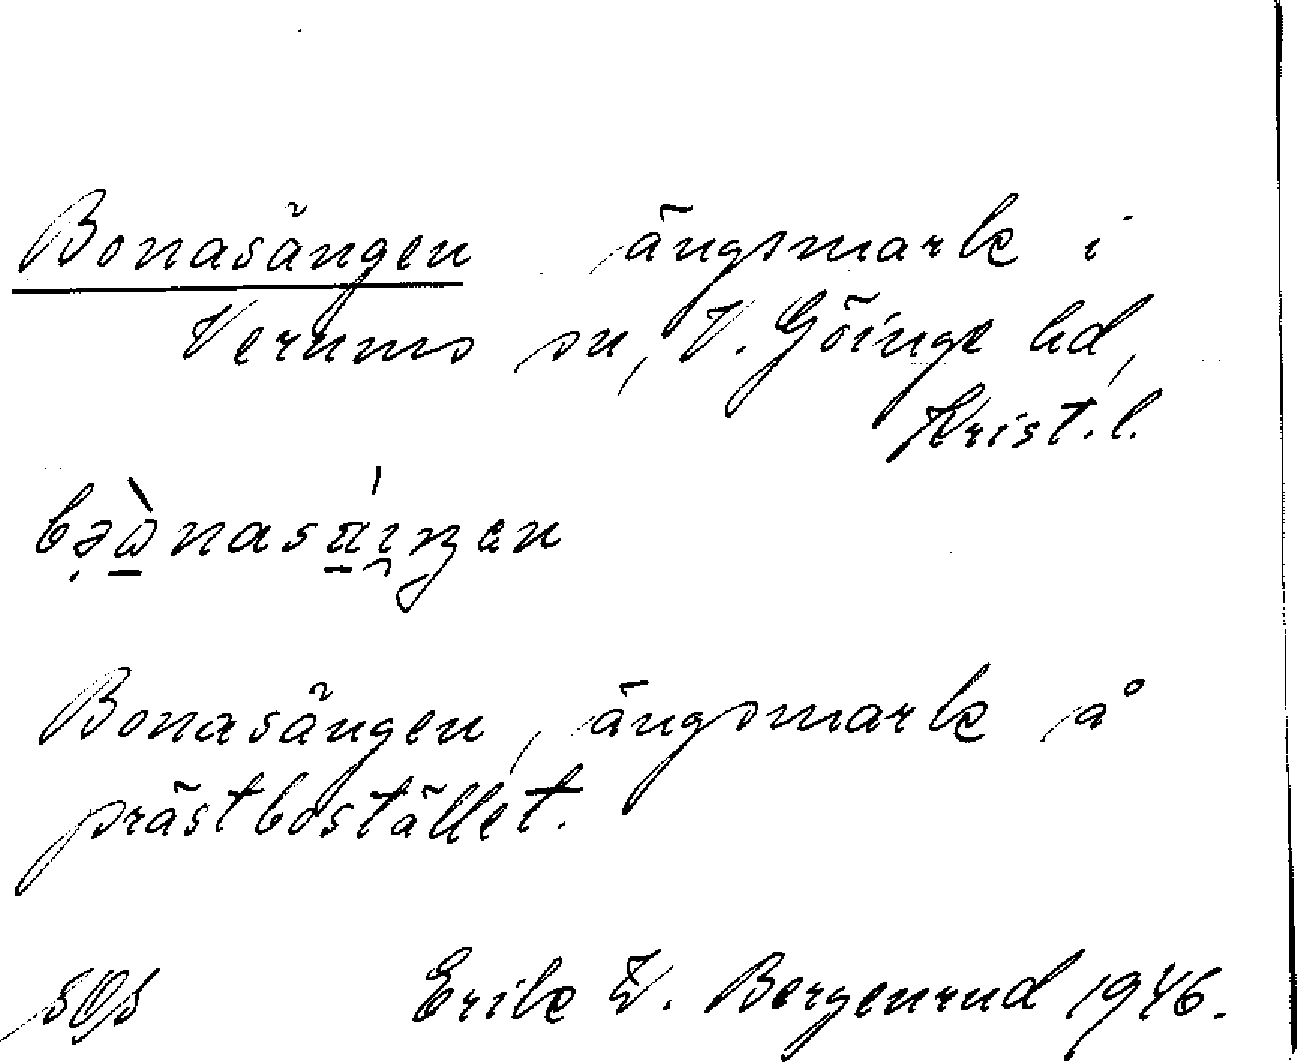 Bonasängen ängsmark i
Verums sn, V. Göinge hd,
Krist. l.
Bonasängen, ängsmark å
prästbostället.
Erik W. Bergenrud 1946.